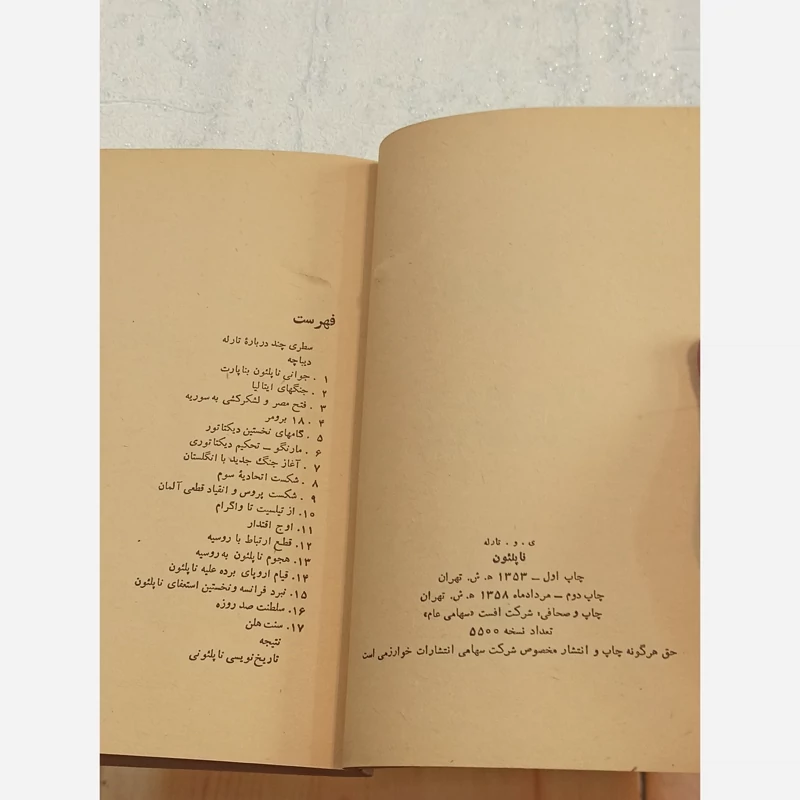 ی. و. تارله
ناپلئون
چاپ اول – ۱۳۵۳ ه‍. ش. تهران
چاپ دوم – مردادماه ۱۳۵۸ ه‍. ش. تهران
چاپ و صحافی، شرکت افست «سهامی عام»
تعداد نسخه ۵۵۰۰
حق هرگونه چاپ و انتشار مخصوص شرکت سهامی انتشارات خوارزمی است
فهرست
سطری چند دربارهٔ تارله
دیباچه
۱. جوانی ناپلئون بناپارت
۲. جنگهای ایتالیا
۳. فتح مصر و لشکرکشی به سوریه
۴. ۱۸ برومر
۵. گامهای نخستین دیکتاتور
۶. مارنگو – تحکیم دیکتاتوری
۷. آغاز جنگ جدید با انگلستان
۸. شکست اتحادیهٔ سوم
۹. شکست پروس و انقیاد قطعی آلمان
۱۰. از تیلسیت تا واگرام
۱۱. اوج اقتدار
۱۲. قطع ارتباط با روسیه
۱۳. هجوم ناپلئون به روسیه
۱۴. قیام اروپای برده علیه ناپلئون
۱۵. نبرد فرانسه و نخستین استعفای ناپلئون
۱۶. سلطنت صد روزه
۱۷. سنت هلن
نتیجه
تاریخ‌نویسی ناپلئونی